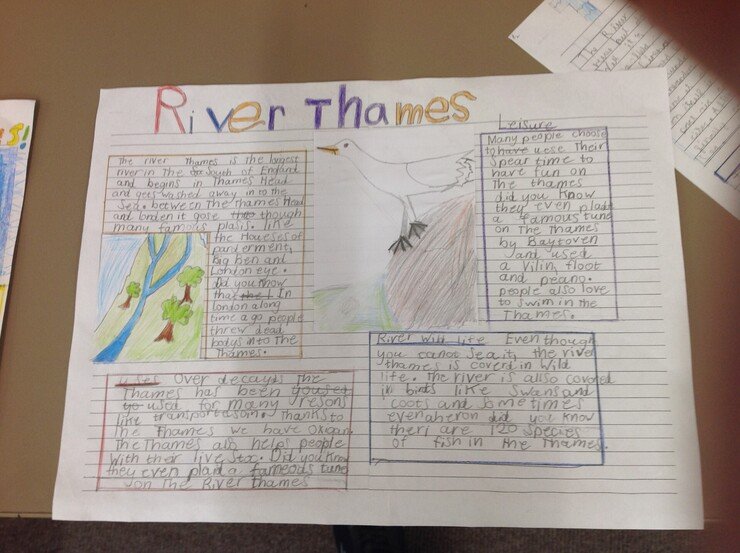 River Thames
The river Thames is the longest
river in The South of England
and begins in Thames Head
and gets washed away in to the
Sea. between The Thames Head
and londen it gose though
many famous plasis. like
the Houeses of
parlerment,
Big Ben and
London eye.
did you know
that In
london along
time a go people
threw dead
bodys into The
Thames.
Leisure
Many people choose
to have uese Their
Spear time to
have fun on
The thames
did you know
they even plade
a famous tune
on The Thames
by Baytoven
and used
a Vilin, floot
and peano.
people also love
to Swim in the
Thames.
Uses Over decayds The
Thames has been yoused
to used for many resons
like transportason. Thanks to
the Thames we have
The Thames also helps people
with ther live Stoc. Did you know
they even plaid a fameods tune
on The River Thames
River Wild life Even though
you canot Sea it, the river
thames is coverd in Wild
life. The river is allso covored
in birds like Swans and
coots and Sometimes
even aheron did you know
theri are 120 Species
of fish in the Thames.